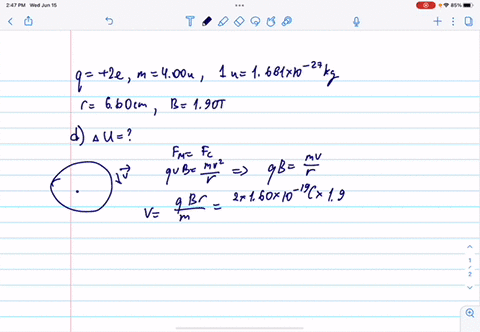 2:47 PM Wed Jun 15
85%
q = +2e, m = 4.00u, 1u = 1.661×10⁻²⁷ kg
r = 6.60cm, B = 1.90T
d) ΔU = ?
F_M = F_C
qvB = mv²/r => qB = mv/r
v⃗
V = qBr/m = 2×1.60×10⁻¹⁹C × 1.9
1
2